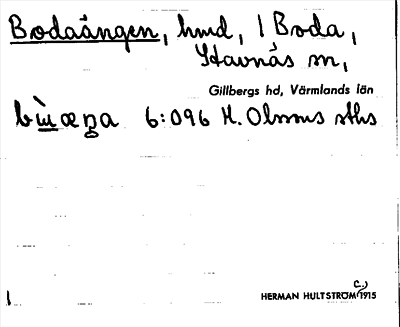 Bodaängen, hmd, 1 Boda,
Stavnäs sn,
Gillbergs hd, Värmlands län
bɯ̀æŋa 6:096 H. Olssons sths
c.)
HERMAN HULTSTRÖM 1915